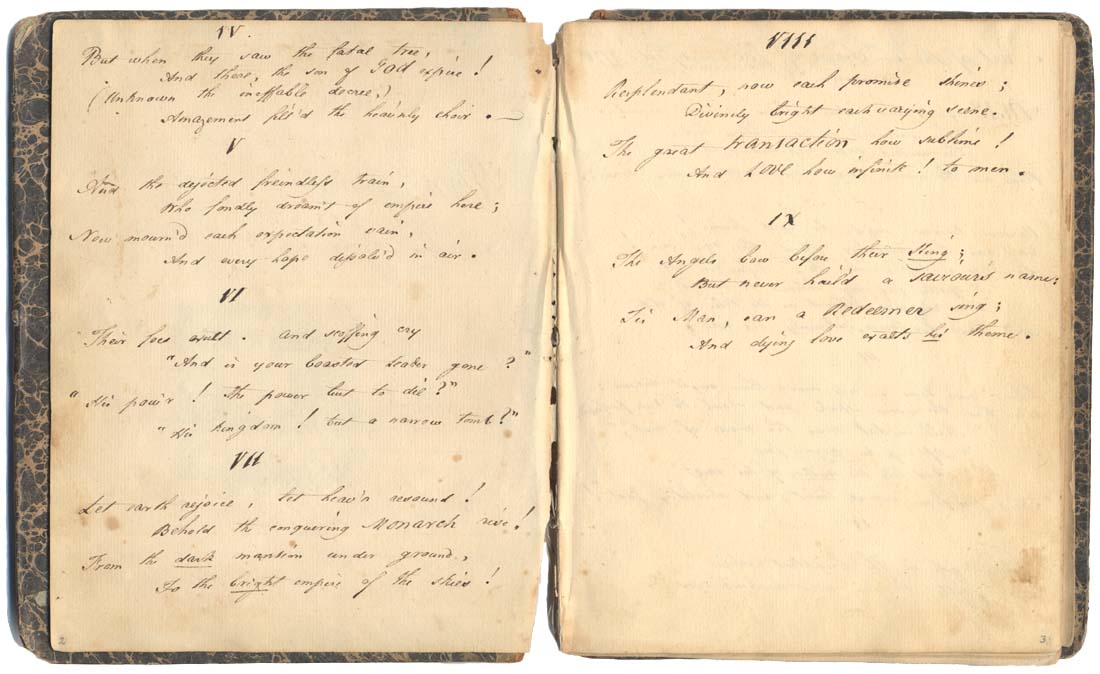 IV.
But when they saw the fatal tree,
And there, the son of God expire!
(Unknown the ineffable decree,)
Amazement fill'd the heav'nly choir.
V
And the dejected freindless train,
Who fondly dream't of empire here;
Now mourn'd each expectation vain,
And every hope dissolv'd in air.
VI
Their foes exult. and scoffing cry
"And is your boasted leader gone?"
"His pow'r! the power but to die?"
"His kingdom! but a narrow tomb?"
VII
Let earth rejoice, let heav'n resound!
Behold the conquering Monarch rise!
From the dark mantion under ground,
To the bright empire of the skies!
2
VIII
Resplendant, now each promise shines;
Divinely bright each varying scene.
The great transaction how sublime!
And LOVE how infinite! to men.
IX
The Angels bow before their King;
But never hail'd a saviour's name:
Tis Man, can a Redeemer sing;
And dying love exalts his theme.
3